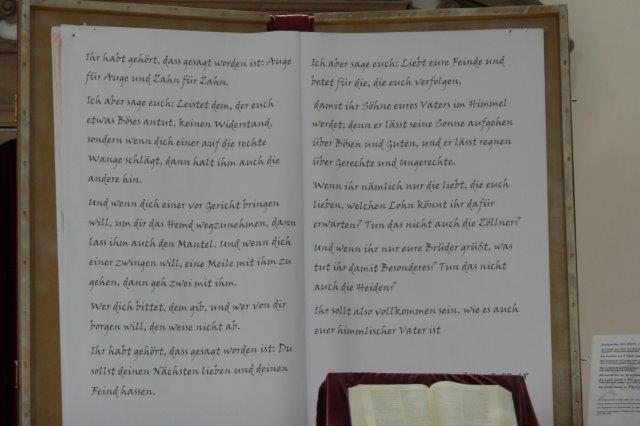 Ihr habt gehört, dass gesagt worden ist: Auge
für Auge und Zahn für Zahn.
Ich aber sage euch: Leistet dem, der euch
etwas Böses antut, keinen Widerstand,
sondern wenn dich einer auf die rechte
Wange schlägt, dann halt ihm auch die
andere hin.
Und wenn dich einer vor Gericht bringen
will, um dir das Hemd wegzunehmen, dann
lass ihm auch den Mantel. Und wenn dich
einer zwingen will, eine Meile mit ihm zu
gehen, dann geh zwei mit ihm.
Wer dich bittet, dem gib, und wer von dir
borgen will, den weise nicht ab.
Ihr habt gehört, dass gesagt worden ist: Du
sollst deinen Nächsten lieben und deinen
Feind hassen.
Ich aber sage euch: Liebt eure Feinde und
betet für die, die euch verfolgen,
damit ihr Söhne eures Vaters im Himmel
werdet; denn er lässt seine Sonne aufgehen
über Bösen und Guten, und er lässt regnen
über Gerechte und Ungerechte.
Wenn ihr nämlich nur die liebt, die euch
lieben, welchen Lohn könnt ihr dafür
erwarten? Tun das nicht auch die Zöllner?
Und wenn ihr nur eure Brüder grüßt, was
tut ihr damit Besonderes? Tun das nicht
auch die Heiden?
Ihr sollt also vollkommen sein, wie es auch
euer himmlischer Vater ist